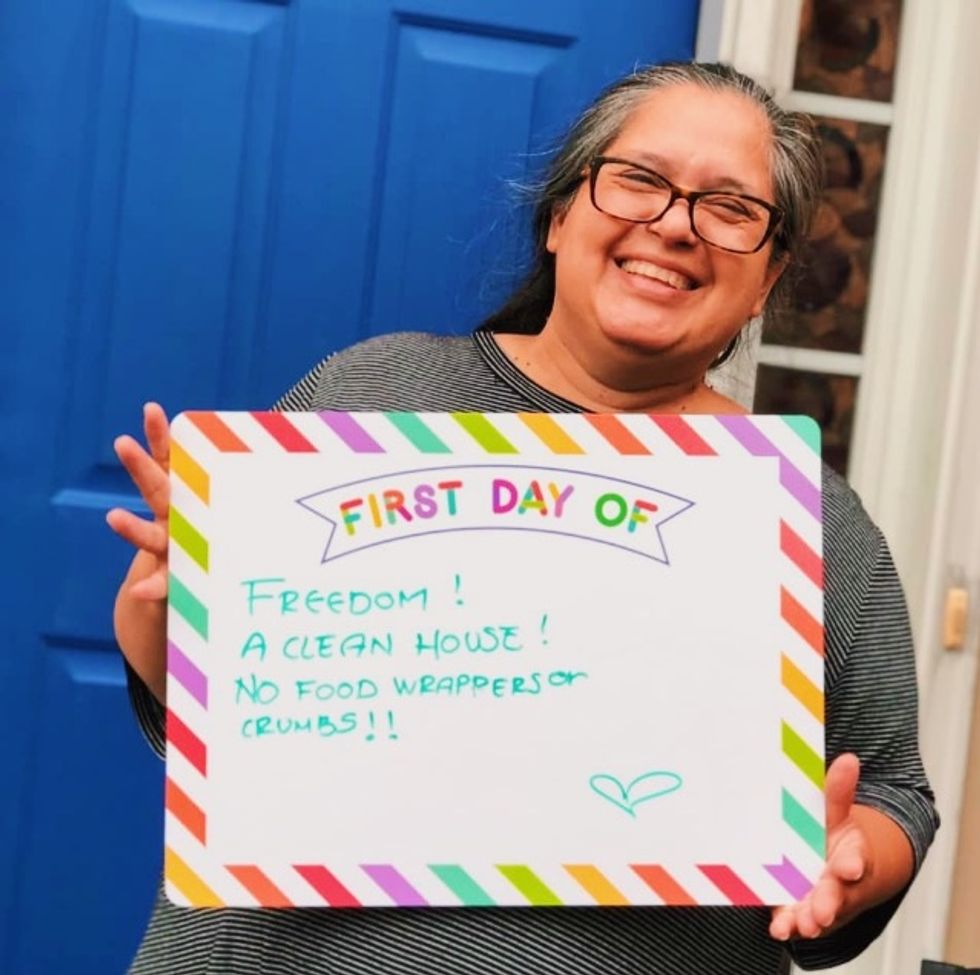 FIRST DAY OF
FREEDOM!
A CLEAN HOUSE!
NO FOOD WRAPPERS or
CRUMBS!!